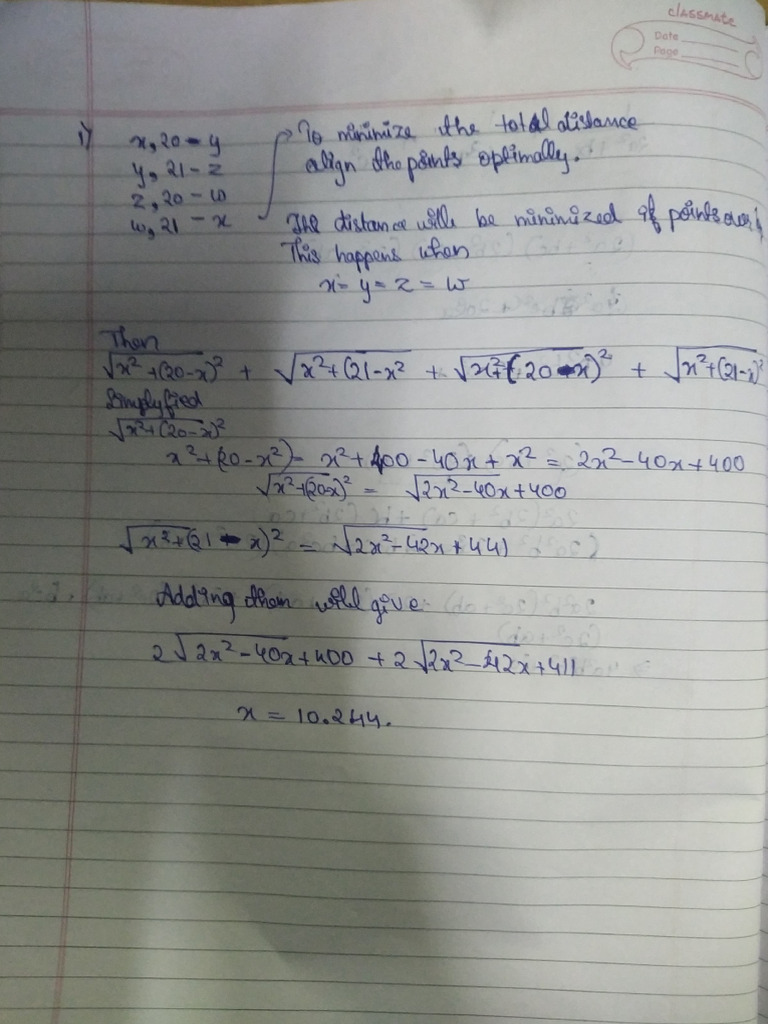 classmate
Date
Page
1) x, 20 - y
y, 21 - z
z, 20 - w
w, 21 - x
To minimize the total distance
align the points optimally.
The distance will be minimized if points are
This happens when
x = y = z = w
Then
√x²+(20-x)² + √x²+(21-x² + √x²+(20-x)² + √x²+(21-x)²
Simplyfied
√x²+(20-x)²
x²+(20-x²) = x²+400-40x+x² = 2x²-40x+400
√x²+(20-x)² = √2x²-40x+400
√x²+(21-x)² = √2x²-42x+441
Adding them will give
2√2x²-40x+400 + 2√2x²-42x+411
x = 10.244.